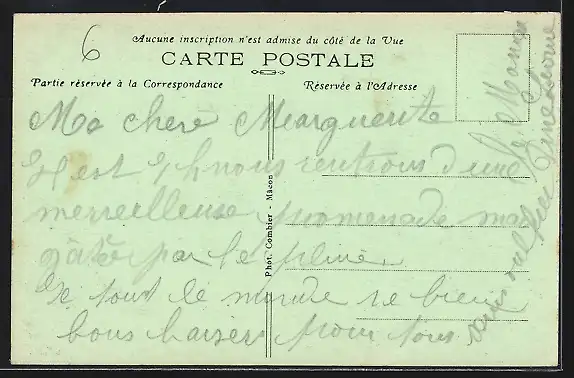 6
Aucune inscription n'est admise du côté de la Vue
CARTE POSTALE
Partie réservée à la Correspondance
Réservée à l'Adresse
Phot. Combier - Mâcon
Ma chere Marguerite
Il est 7h nous rentrons d'une
merveilleuse promenade mais
gâtée par la pluie.
tout le monde va bien
bons baisers pour tous